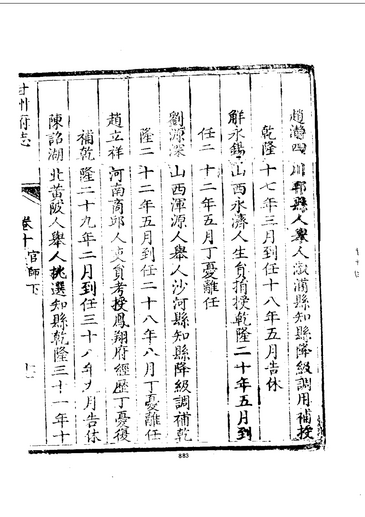 趙濟四川郫縣人舉人溆浦縣知縣降級調用補授
乾隆十七年三月到任十八年五月告休
解永錫山西永濟人生貟捐授乾隆二十年五月到
任二十二年五月丁憂離任
劉源深山西渾源人舉人沙河縣知縣降級調補乾
隆二十二年五月到任二十八年八月丁憂離任
趙立祥河南商邱人貢考授鳳翔府經歷丁憂復
補乾隆二十九年二月到任三十八年九月告休
陳詔湖北黃陂人舉人挑選知縣乾隆三十一年十
甘州府志
卷十官師下
十一
883